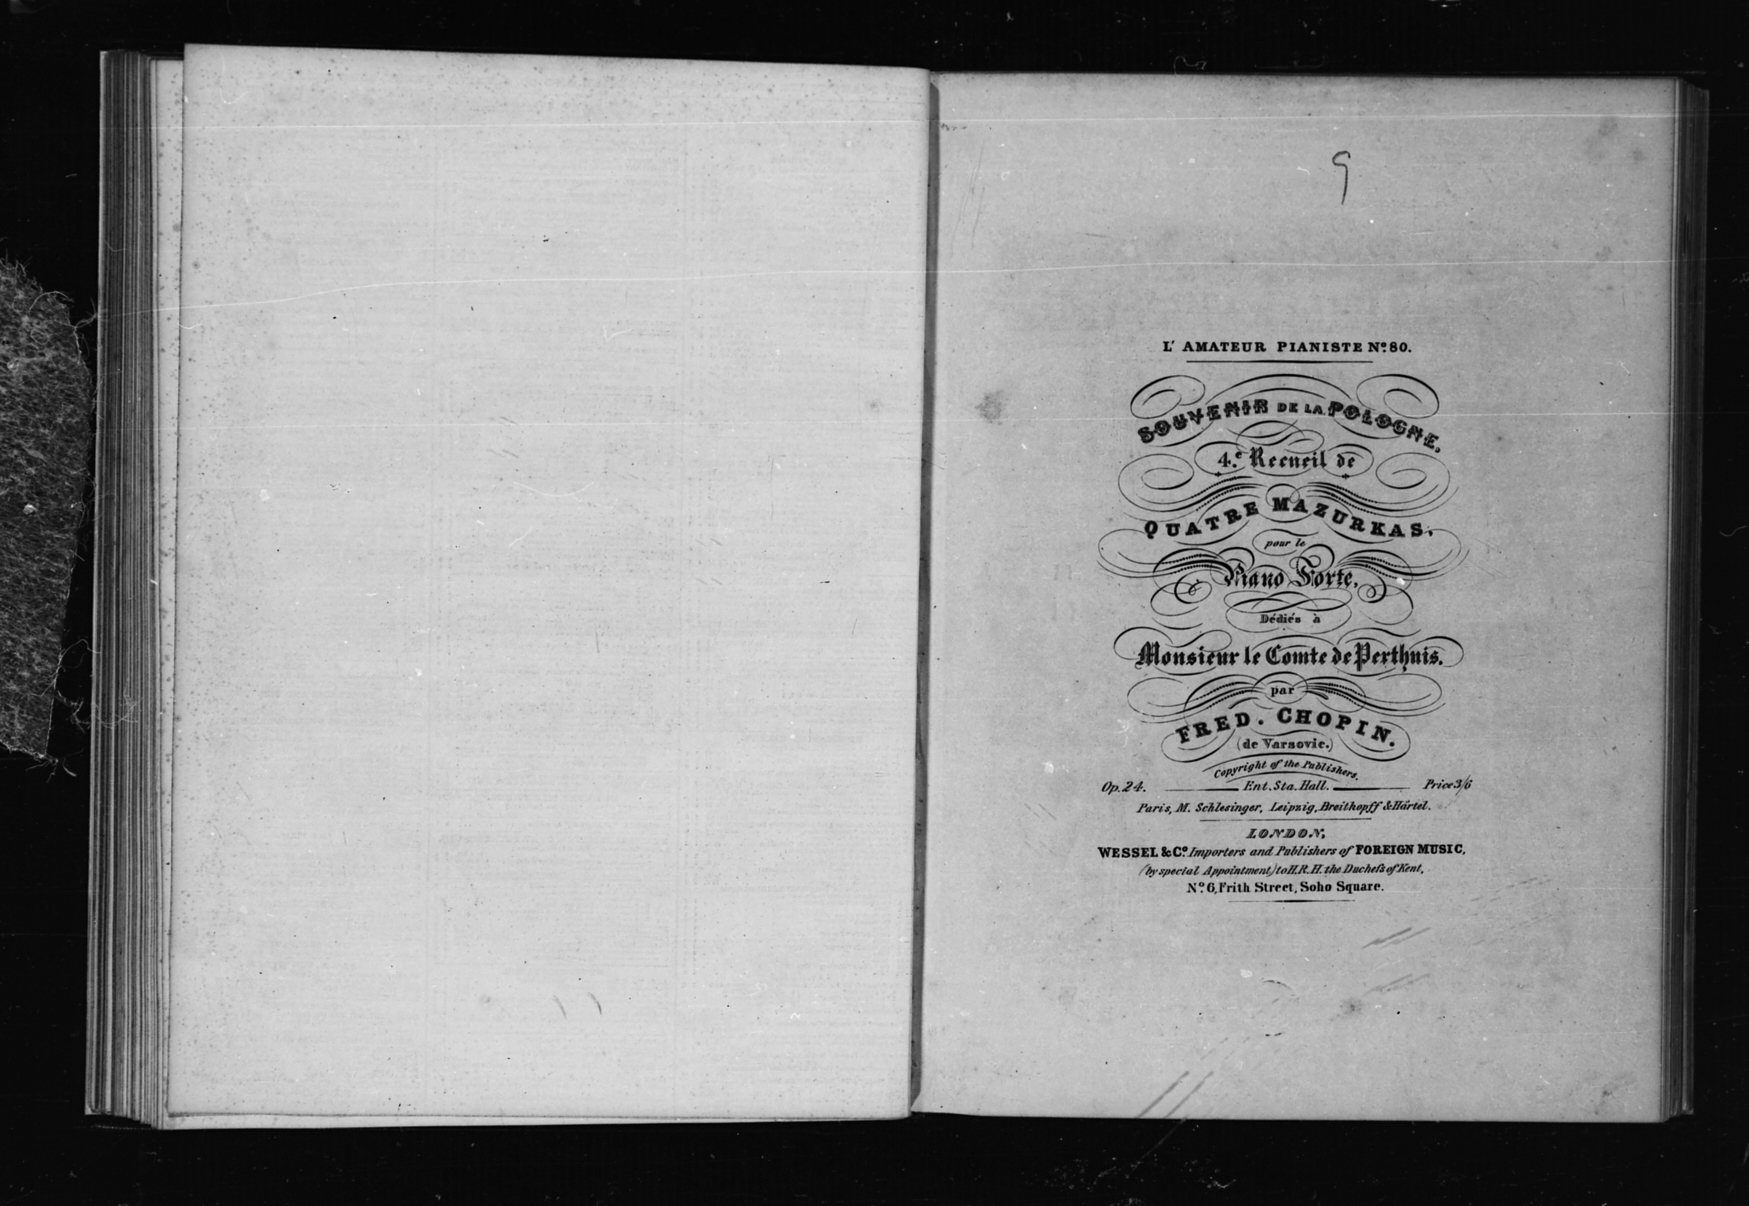 9
L' AMATEUR PIANISTE No. 80.
SOUVENIR DE LA POLOGNE,
4.e Recueil de
QUATRE MAZURKAS,
pour le
Piano Forte,
Dédiés à
Monsieur le Comte de Perthuis.
par
FRED. CHOPIN.
(de Varsovie.)
Copyright of the Publishers.
Op. 24. Ent. Sta. Hall. Price 3/6
Paris, M. Schlesinger, Leipzig, Breithopff & Härtel.
LONDON,
WESSEL & Co. Importers and Publishers of FOREIGN MUSIC,
(by special Appointment) to H.R.H. the Duchefs of Kent,
No. 6, Frith Street, Soho Square.